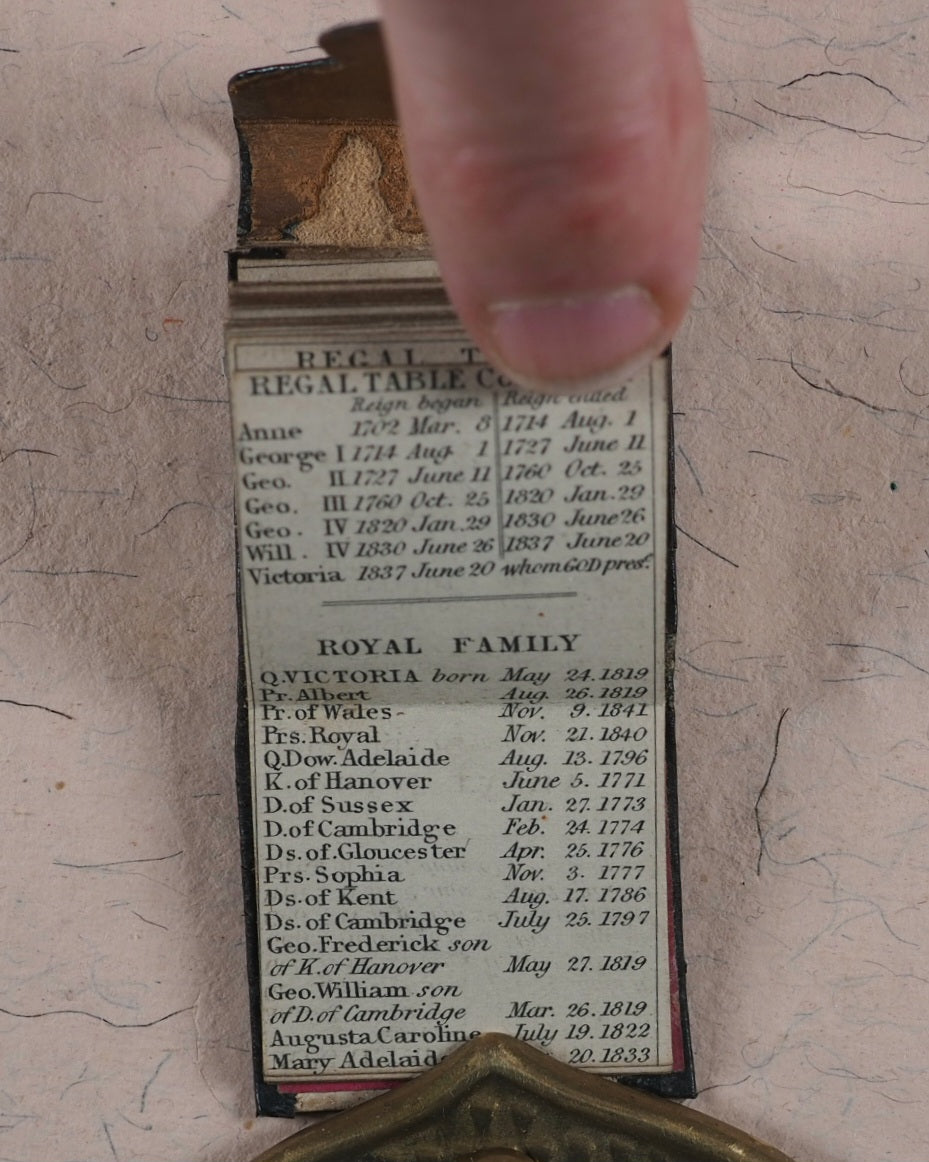 REGAL
REGAL TABLE
Reign began Reign ended
Anne 1702 Mar. 8 1714 Aug. 1
George I 1714 Aug. 1 1727 June 11
Geo. II 1727 June 11 1760 Oct. 25
Geo. III 1760 Oct. 25 1820 Jan. 29
Geo. IV 1820 Jan. 29 1830 June 26
Will. IV 1830 June 26 1837 June 20
Victoria 1837 June 20 whom GOD pres.
ROYAL FAMILY
Q.VICTORIA born May 24. 1819
Pr. Albert Aug. 26. 1819
Pr. of Wales - Nov. 9. 1841
Prs. Royal Nov. 21. 1840
Q.Dow. Adelaide Aug. 13. 1796
K. of Hanover June 5. 1771
D. of Sussex Jan. 27. 1773
D. of Cambridge Feb. 24. 1774
Ds. of Gloucester Apr. 25. 1776
Prs. Sophia Nov. 3. 1777
Ds. of Kent Aug. 17. 1786
Ds. of Cambridge July 25. 1797
Geo. Frederick son
of K. of Hanover May 27. 1819
Geo. William son
of D. of Cambridge Mar. 26. 1819
Augusta Caroline July 19. 1822
Mary Adelaide 20. 1833